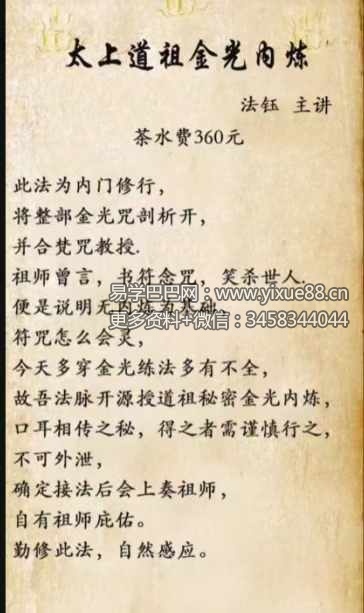 太上道祖金光内炼
法钰 主讲
茶水费360元
此法为内门修行，
将整部金光咒剖析开，
并合梵咒教授.
祖师曾言，书符念咒，笑杀世人.
易学巴巴网：www.yixue88.cn
便是说明无内炼为基础，
更多资料+微信：3458344044
符咒怎么会灵，
今天多穿金光练法多有不全，
故吾法脉开源授道祖秘密金光内炼，
口耳相传之秘，得之者需谨慎行之，
不可外泄，
确定接法后会上奏祖师，
自有祖师庇佑。
勤修此法，自然感应。